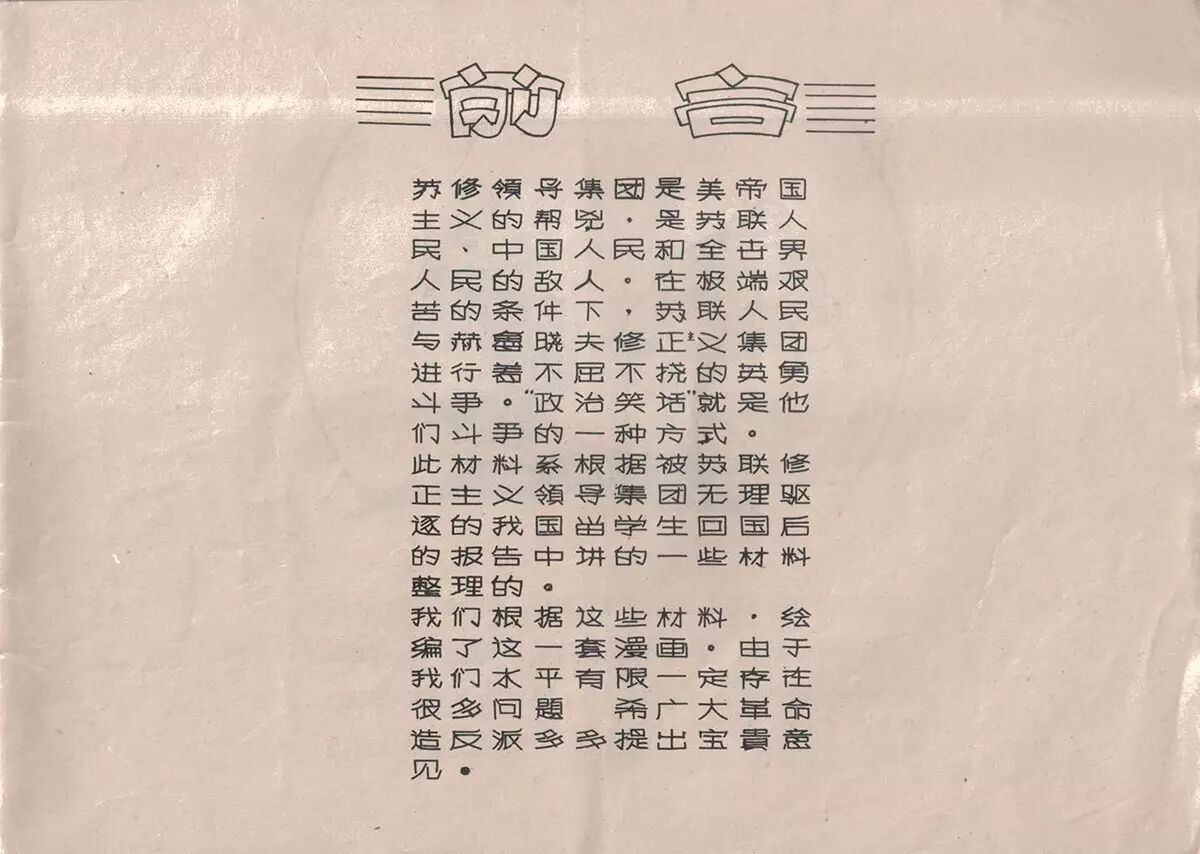 前言
苏修領导集团是美帝国
主义的帮兇，是苏联人
民、中国人民和全世界
人民的敌人。在极端艰
苦的条件下，苏联人民
与赫鲁晓夫修正主义集团
进行着不屈不挠的英勇
斗争。“政治笑话”就是他
们斗争的一种方式。
此材料系根据被苏联修
正主义領导集团无理驱
逐的我国留学生回国后
的报告中讲的一些材料
整理的。
我们根据这些材料，绘
编了这一套漫画。由于
我们水平有限一定存在
很多问题　希广大革命
造反派多多提出宝貴意
见。